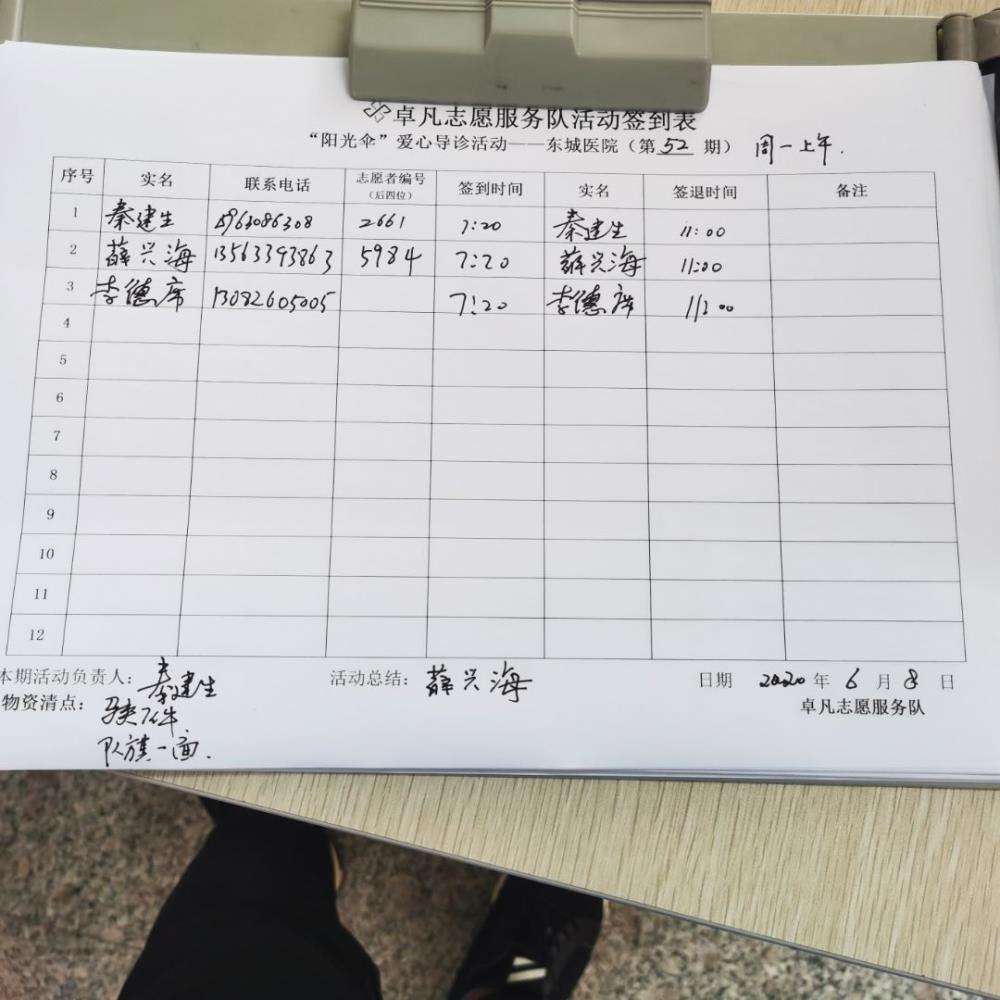 卓凡志愿服务队活动签到表
“阳光伞”爱心导诊活动——东城医院（第52期） 周一上午.
序号 实名 联系电话 志愿者编号（后四位） 签到时间 实名 签退时间 备注
1 秦建生 15963086308 2661 7:20 秦建生 11:00
2 薛兴海 13563393863 5984 7:20 薛兴海 11:00
3 李德席 13082605005 7:20 李德席 11:00
4
5
6
7
8
9
10
11
12
本期活动负责人：秦建生 活动总结：薛兴海 日期 2020年6月8日
物资清点： 卓凡志愿服务队
队旗一面.